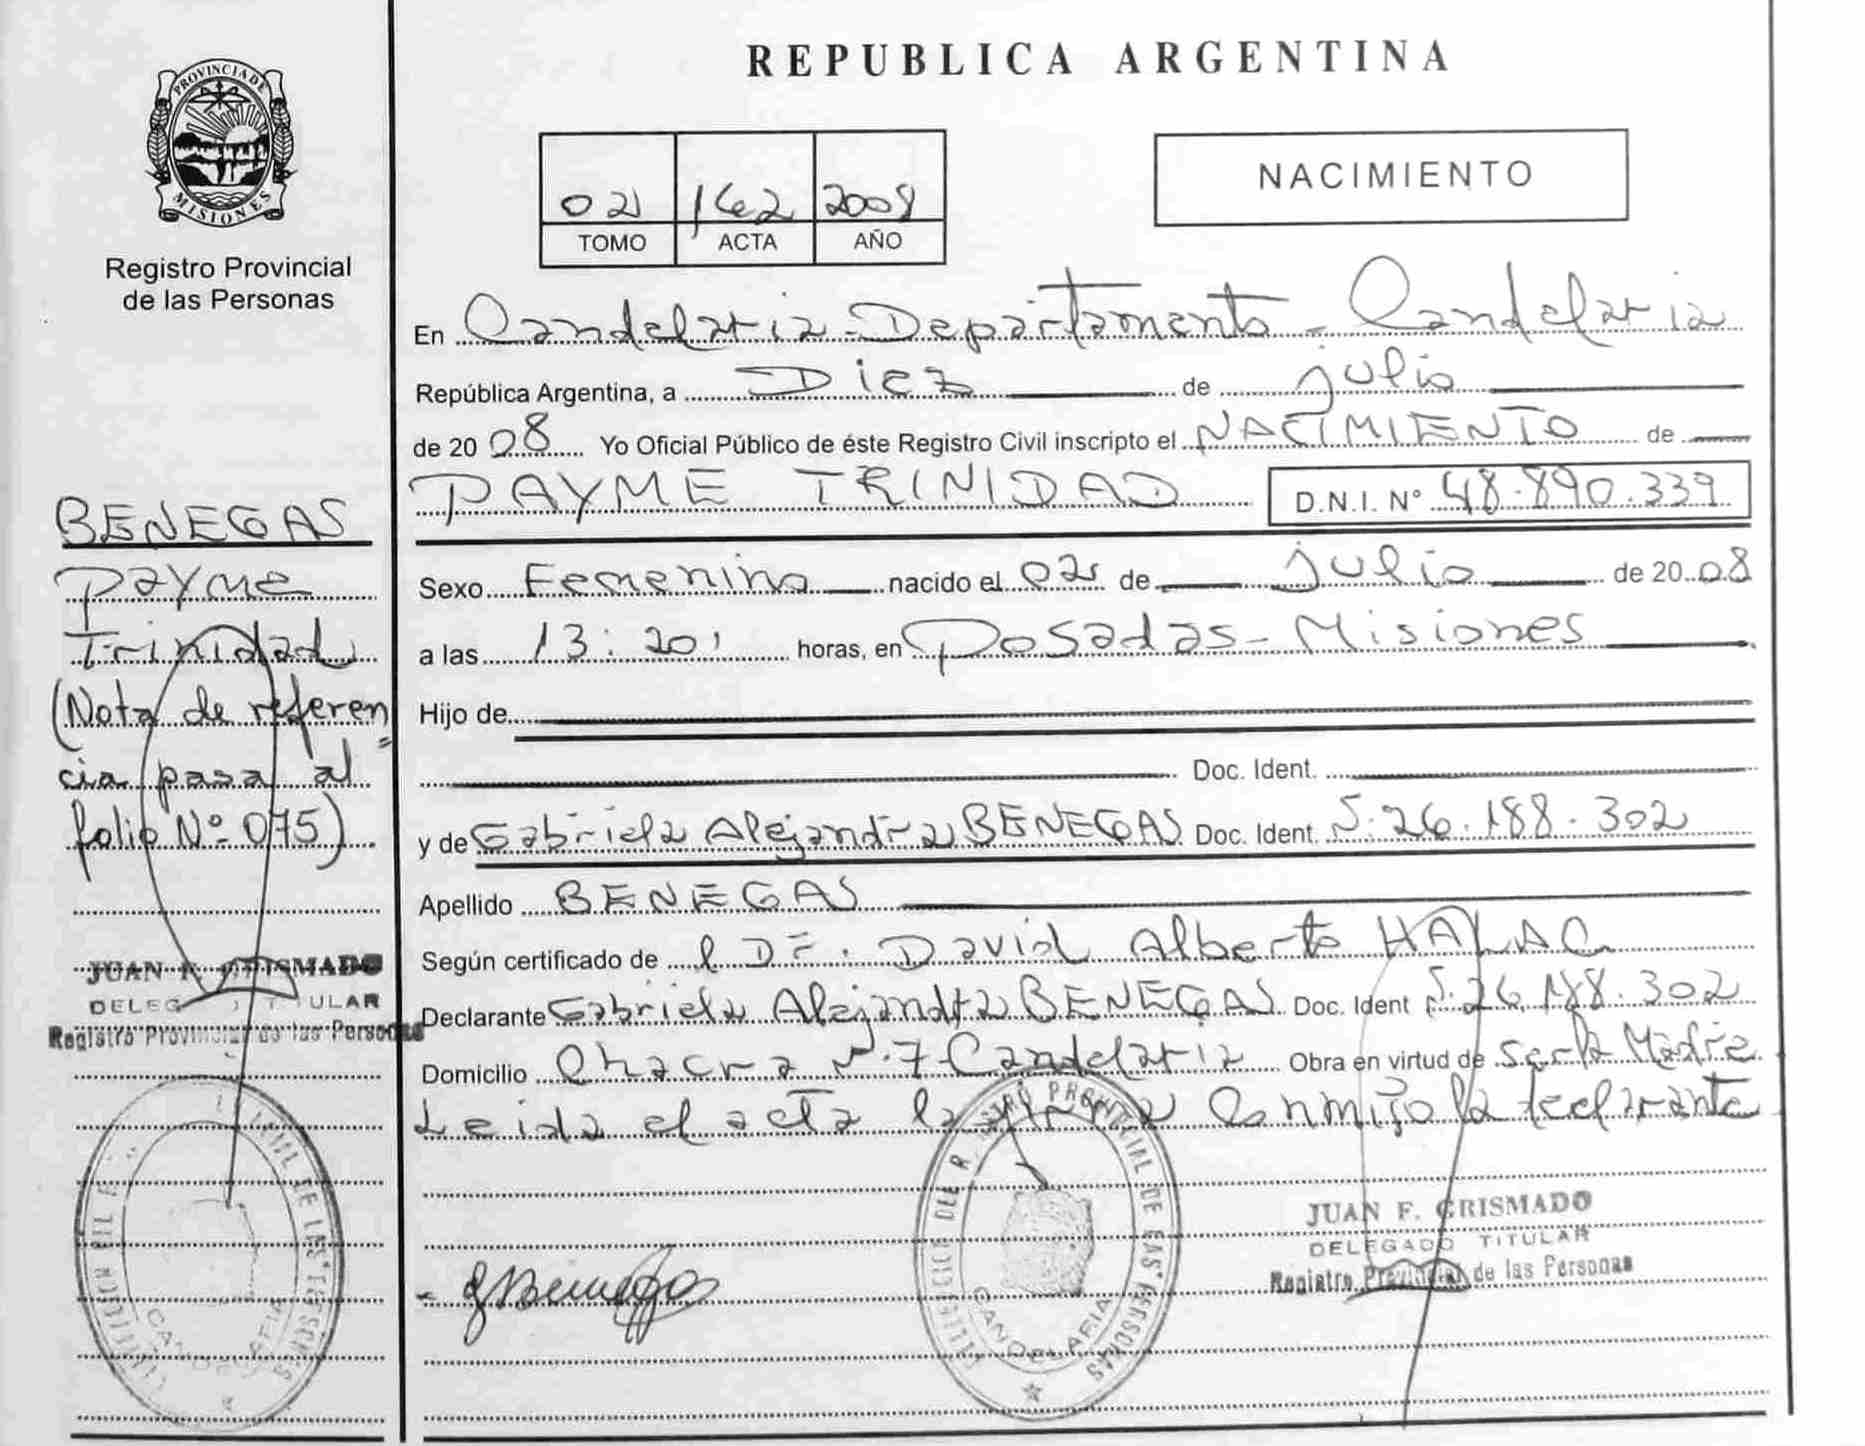 PROVINCIA DE
MISIONES
Registro Provincial
de las Personas
REPUBLICA ARGENTINA
02 162 2008
TOMO ACTA AÑO
NACIMIENTO
En Candelaria - Departamento - Candelaria
República Argentina, a Diez de julio
de 20 08 Yo Oficial Público de éste Registro Civil inscripto el NACIMIENTO de
PAYME TRINIDAD D.N.I. N° 48.890.339
Sexo Femenino nacido el 02 de julio de 20 08
a las 13:20' horas, en Posadas - Misiones
Hijo de
Doc. Ident.
y de Gabriela Alejandra BENEGAS Doc. Ident. 26.188.302
Apellido BENEGAS
Según certificado de David Alberto HALAC
Declarante Gabriela Alejandra BENEGAS Doc. Ident 26.188.302
Domicilio Chacra N.7 Candelaria Obra en virtud de ser la Madre
Leida el acta la firma Conmigo la declarante
JUAN F. CRISMADO
DELEGADO TITULAR
Registro Provincial de las Personas
BENEGAS
Payme
Trinidad
(Nota de referen
cia pasa al
folio Nº 075)
JUAN F. CRISMADO
DELEG TITULAR
Registro Provincial de las Personas
REGISTRO PROVINCIAL DE LAS PERSONAS
CANDELARIA